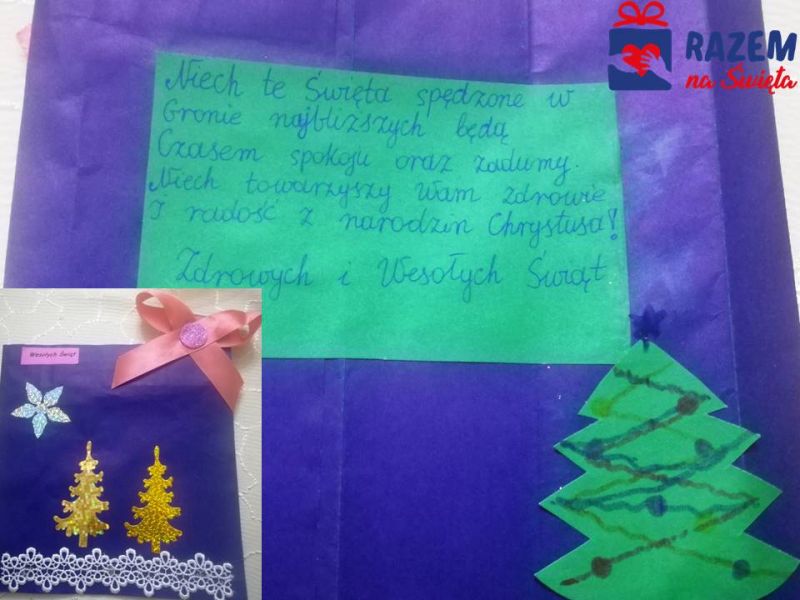 RAZEM
na Święta
Niech te Święta spędzone w
Gronie najbliższych będą
Czasem spokoju oraz zadumy.
Niech towarzyszy Wam zdrowie
I radość z narodzin Chrystusa!
Zdrowych i Wesołych Świąt
Wesołych Świąt